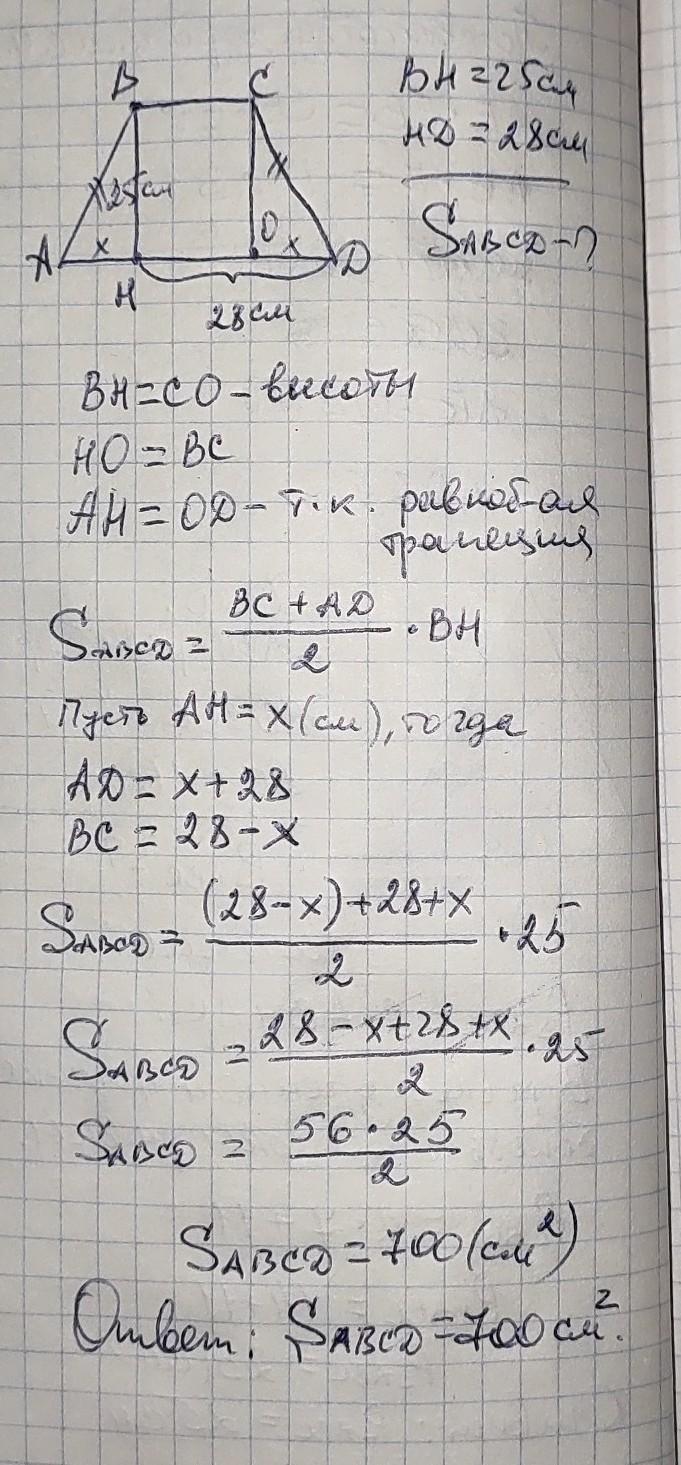 B C
25см
A x H O x D
28см
BH = 25см
HD = 28см
S ABCD - ?
BH = CO - высоты
HO = BC
AH = OD - т.к. равноб-ая
трапеция
S ABCD = (BC + AD)/2 · BH
Пусть AH = x (см), тогда
AD = x + 28
BC = 28 - x
S ABCD = ((28 - x) + 28 + x)/2 · 25
S ABCD = (28 - x + 28 + x)/2 · 25
S ABCD = (56 · 25)/2
S ABCD = 700 (см²)
Ответ: S ABCD = 700 см².